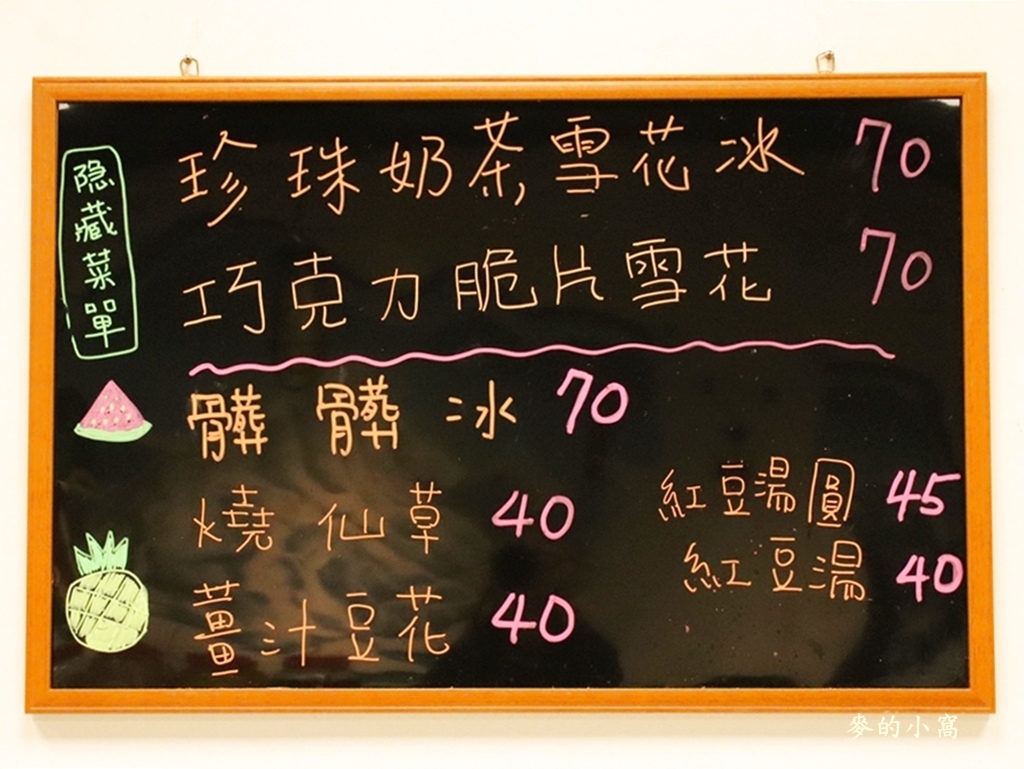 隐藏菜單
珍珠奶茶雪花冰 70
巧克力脆片雪花 70
髒髒冰 70
燒仙草 40
薑汁豆花 40
紅豆湯圓 45
紅豆湯 40
麥的小窩